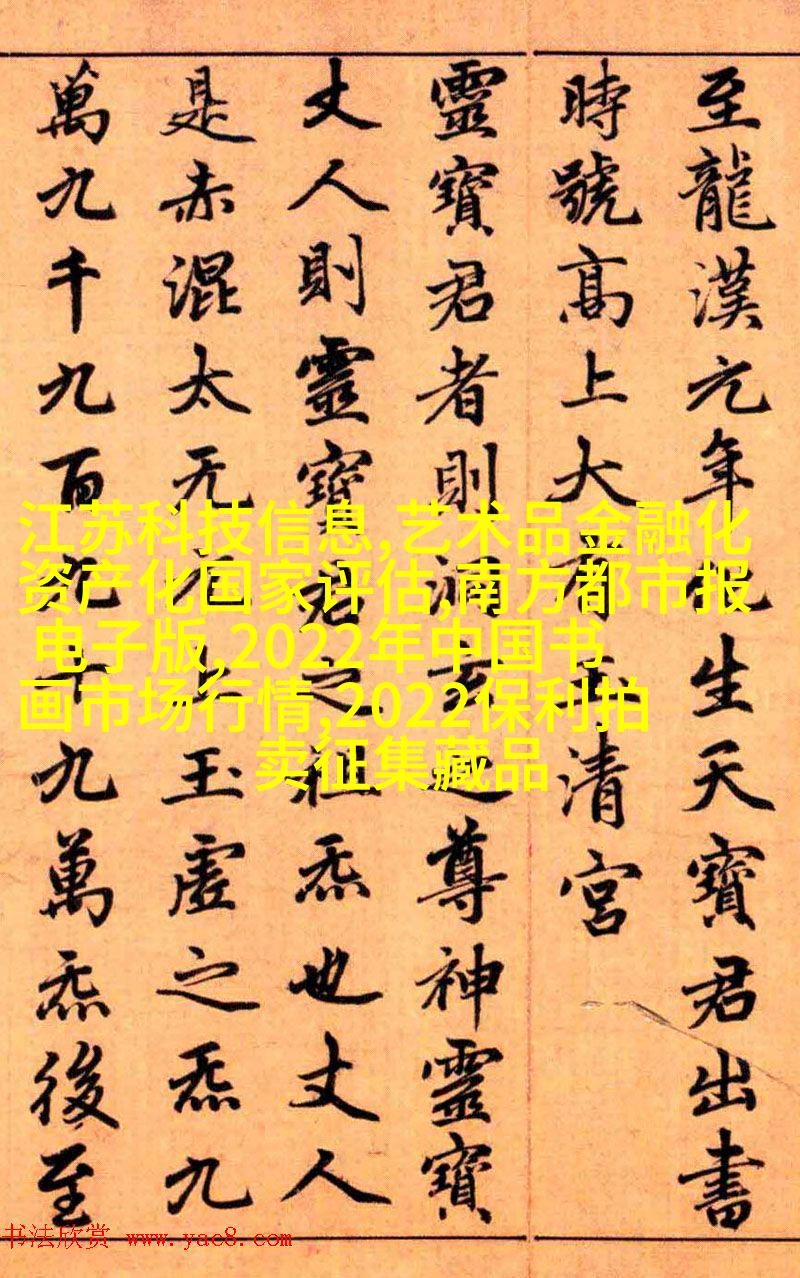 至龍漢元年化生天寶君出書
時號高上大有玉清宮
靈寶君者則洞玄之尊神靈寶
丈人則靈寶君之祖炁也丈人
是赤混太无元上玉虛之炁九
萬九千九百九十九萬炁後至
江苏科技信息,艺术品金融化
资产化国家评估,南方都市报
电子版,2022年中国书
画市场行情,2022保利拍
卖征集藏品
书法欣赏 www.yac8.com